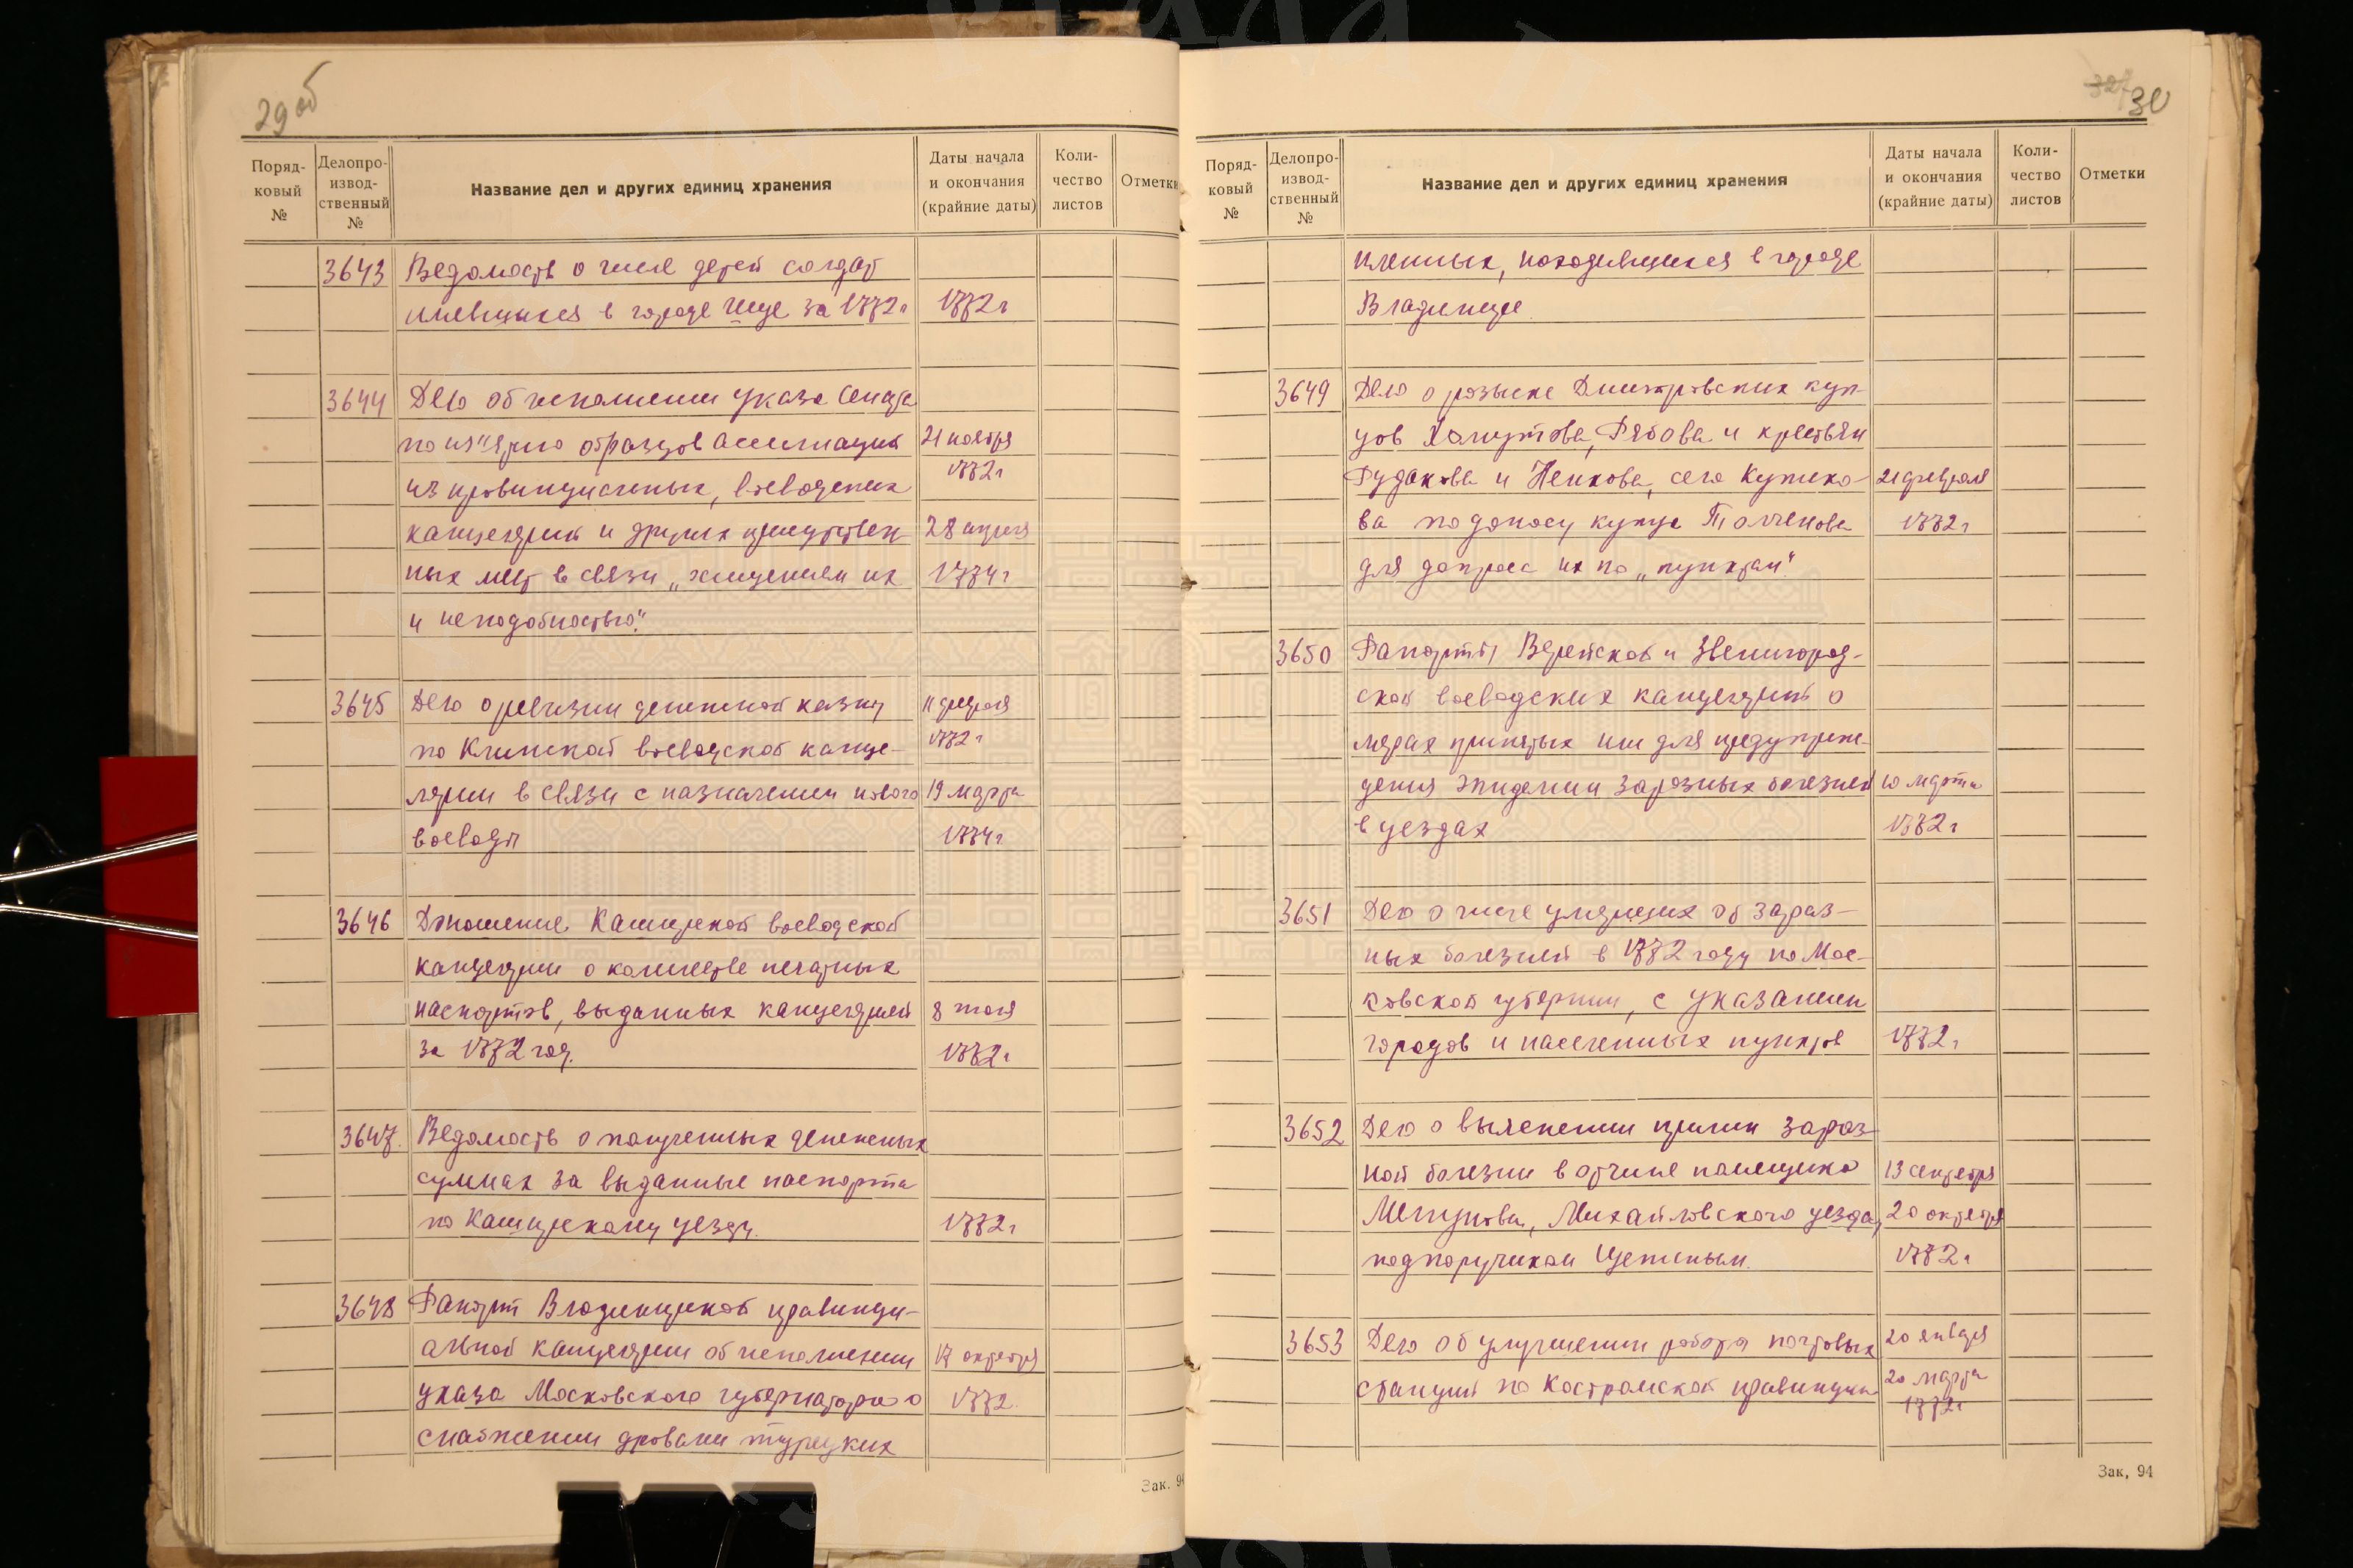 29 об
Поряд-
ковый
№
Делопро-
извод-
ственный
№
Название дел и других единиц хранения
Даты начала
и окончания
(крайние даты)
Коли-
чество
листов
Отметки
3643 Ведомость о числе детей солдат
имевшихся в городе за 1772 г 1772 г
3644 Дело об исполнении указа Сената
по изъятию образцов ассигнаций 21 ноября
из провинциальных, воеводских 1772 г
канцелярий и других присутствен 28 апреля
ных мест в связи „хищением их 1774 г
и неподобностью".
3645 Дело о ревизии денежной казны 11 февраля
по Клинской воеводской канце- 1772 г
лярии в связи с назначением нового 19 марта
воеводы 1774 г
3646 Доношение Каширской воеводской
канцелярии о количестве печатных
паспортов, выданных канцелярией 8 июля
за 1772 год. 1772 г
3647. Ведомость о полученных денежных
суммах за выданные паспорта
по Каширскому уезду. 1772 г
3648 Рапорт Владимирской провинци-
альной канцелярии об исполнении 17 октября
указа Московского губернатора о 1772.
снабжении дровами турецких
Зак. 94
327 30
Поряд-
ковый
№
Делопро-
извод-
ственный
№
Название дел и других единиц хранения
Даты начала
и окончания
(крайние даты)
Коли-
чество
листов
Отметки
пленных, находившихся в городе
Владимире.
3649 Дело о розыске Дмитровских куп-
цов Халутова, Рябова и крестьян
Рудакова и Пенкова, села 21 февраля
ва по доносу купца Толченова 1772 г
для допроса их по „пунктам".
3650 Рапорты Верейской и Звенигород-
ской воеводских канцелярий о
мерах принятых ими для предупреж-
дения эпидемии заразных болезней 10 марта
в уездах 1772 г
3651 Дело о числе умерших от зараз-
ных болезней в 1772 году по Мос-
ковской губернии, с указанием
городов и населенных пунктов 1772 г
3652 Дело о выяснении причин зараз
ной болезни в вотчине помещика 13 сентября
Михайловского уезда, 20 октября
подпоручиком Щетиным. 1772 г
3653 Дело об улучшении работы почтовых 20 января
станций по Костромской провинции 20 марта
1772 г
Зак, 94